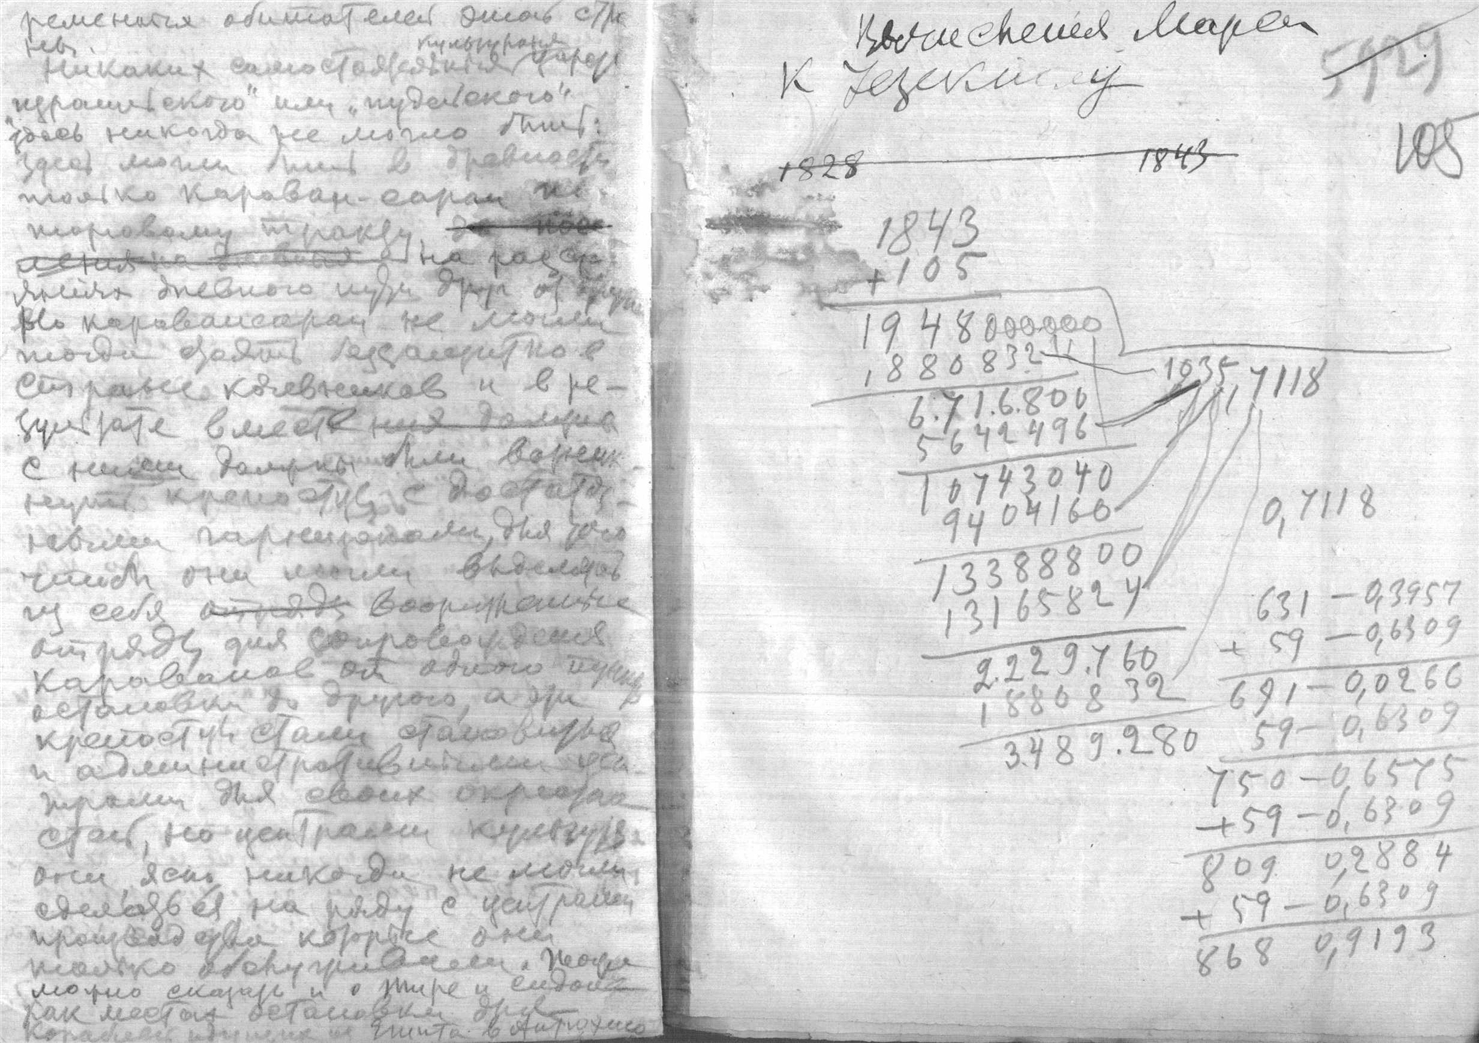 ременится обитателей этой стра
ны.
культурных
Никаких самостоятельных царств
"израильского" или "иудейского"
здесь никогда не могло быть:
здесь могли быть в древности
только караван-сараи по
торговому тракту
на расст
яниях дневного пути друг от друга
Но каравансараи не могли
тогда стоять беззащитно в
стране кочевников и в ре-
зультате вместе
с ними должны были возник-
нуть крепости с достаточ-
ными гарнизонами, для того
чтобы они могли выделять
из себя отряды вооруженные
отряды для сопровождения
караванов от одного пункта
остановки до другого, а эти
крепости стали становиться
и административными цен
трами для своих окрестно
стей, но центрами культуры
они ясно никогда не могли
сделаться на ряду с центрами
производства которые они
только обслуживали. Тоже
можно сказать и о Тире и Сидоне
как местах остановки для
кораблей идущих из Египта в Антиохию
Вычисления Марса
К Иезекиилу
5929
105
1828 1843
1843
+105
1948000000
1880832 1035,7118
6.716.800
5642496
10743040
9404160
0,7118
13388800
13165824
631 – 0,3957
+ 59 – 0,6309
2.229.760
691 – 0,0266
1880832
59 – 0,6309
3489.280
750 – 0,6575
+59 – 0,6309
809 0,2884
+ 59 – 0,6309
868 0,9193